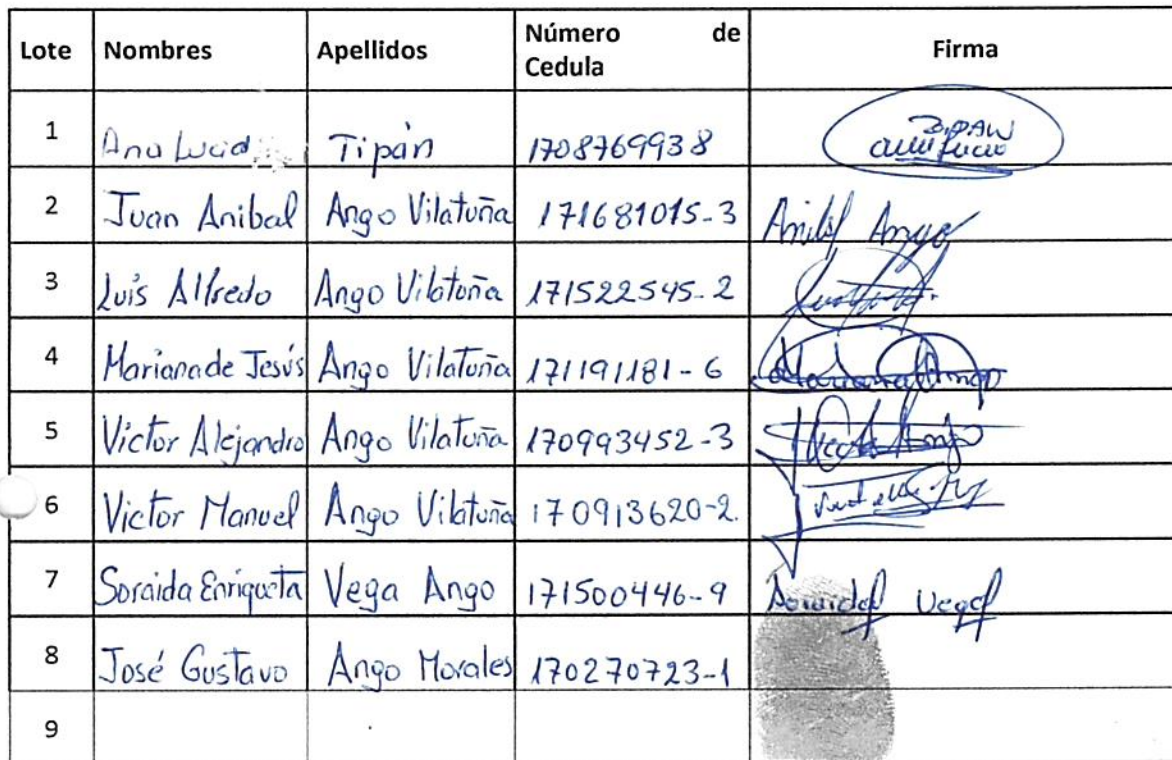 Lote Nombres Apellidos Número de Cedula Firma
1 Ana Lucia Tipán 1708769938
2 Juan Anibal Ango Vilatuña 171681015-3 Anibal Ango
3 Luis Alfredo Ango Vilatuña 171522545-2
4 Mariana de Jesús Ango Vilatuña 171191181-6 Mariana Ango
5 Victor Alejandro Ango Vilatuña 170993452-3
6 Victor Manuel Ango Vilatuña 170913620-2.
7 Soraida Enriqueta Vega Ango 171500446-9 Soraida Vega
8 José Gustavo Ango Morales 170270723-1
9